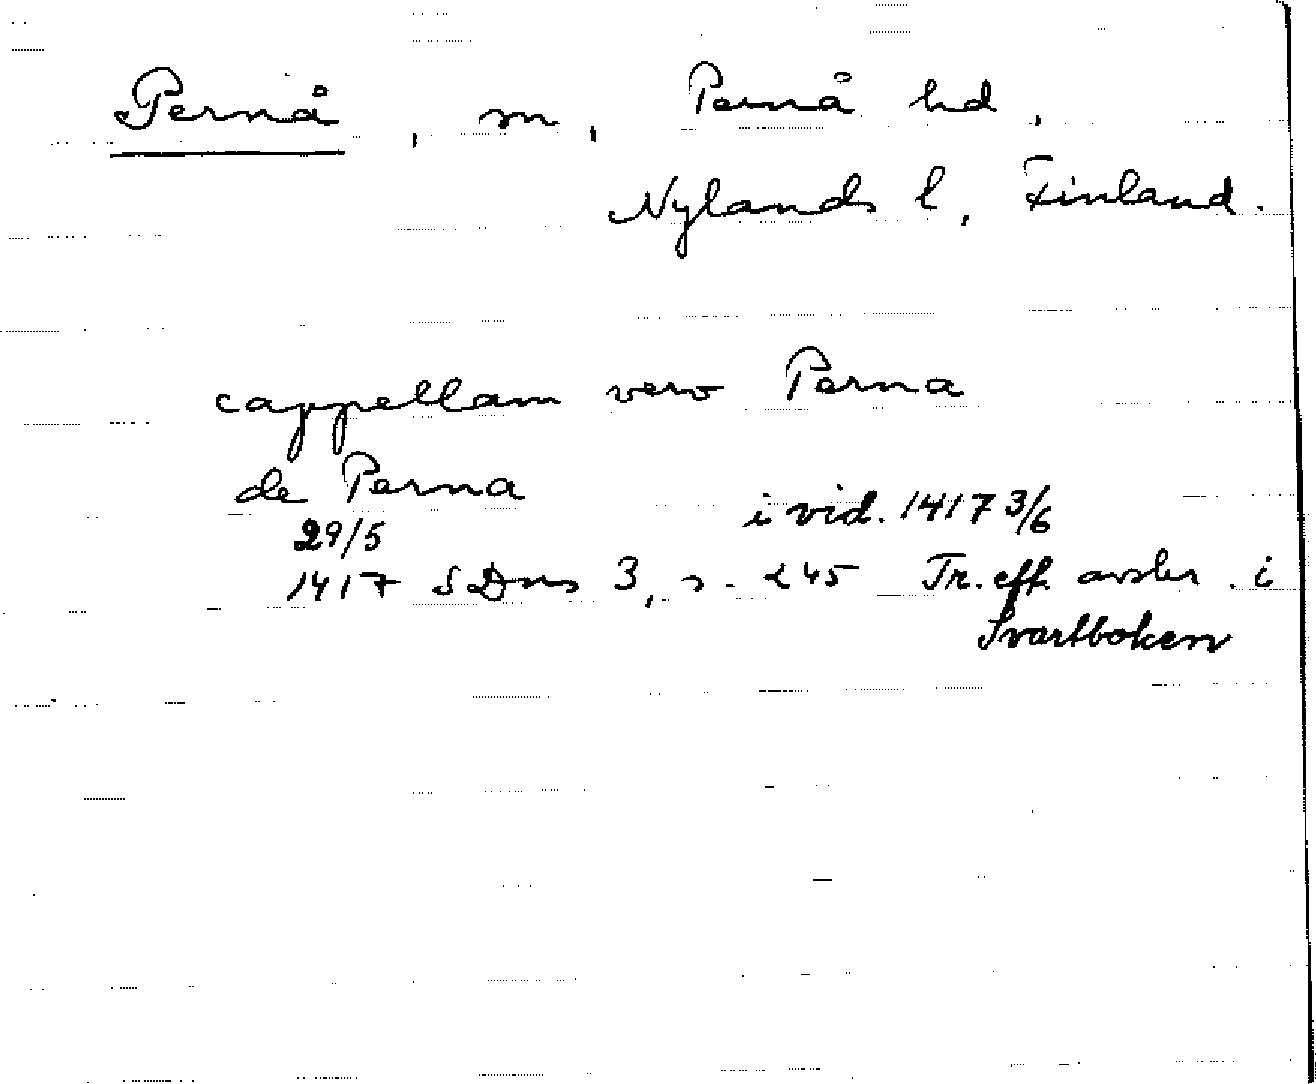 Pernå, sn, Pernå hd,
Nylands l, Finland.
cappellam vero Perna
de Perna
29/5 i vid. 1417 3/6
1417 SDns 3, s. 245 Tr. eft avskr. i
Svartboken